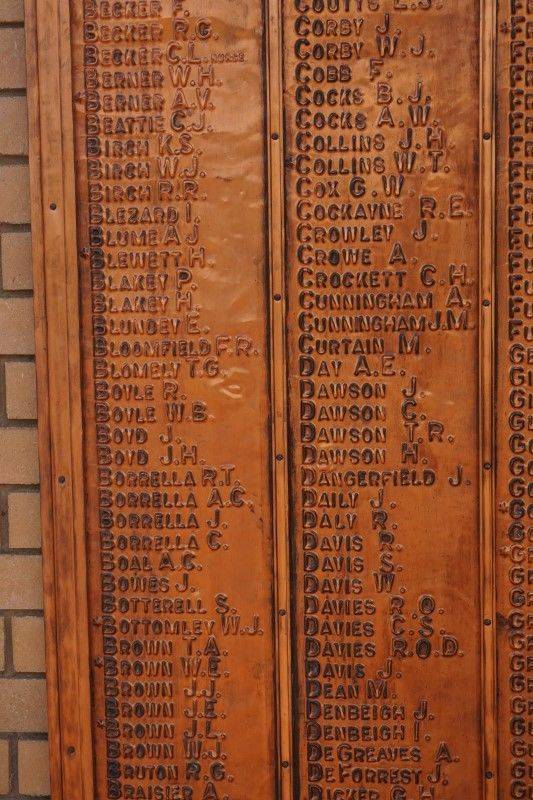 BECKER F.
BECKER R.G.
BECKER C.L. NURSE
BERNER W.H.
BERNER A.V.
BEATTIE C.J.
BIRCH K.S.
BIRCH W.J.
BIRCH R.R.
BLEZARD I.
BLUME A J
BLEWETT H.
BLAKEY P.
BLAKEY H.
BLUNDEY E.
BLOOMFIELD F.R.
BLOMELY T.G.
BOYLE R.
BOYLE W.B.
BOYD J.
BOYD J.H.
BORRELLA R.T.
BORRELLA A.C.
BORRELLA J.
BORRELLA C.
BOAL A.C.
BOWES J.
BOTTERELL S.
BOTTOMLEY W.J.
BROWN T.A.
BROWN W.E.
BROWN J.J.
BROWN J.E.
BROWN J.L.
BROWN W.J.
BRUTON R.G.
BRAISIER A.
COUTTS L.J.
CORBY J.
CORBY W.J.
COBB F.
COCKS B.J.
COCKS A.W.
COLLINS J.H.
COLLINS W.T.
COX G.W.
COCKAYNE R.E.
CROWLEY J.
CROWE A.
CROCKETT C.H.
CUNNINGHAM A.
CUNNINGHAM J.M.
CURTAIN M.
DAY A.E.
DAWSON J.
DAWSON C.
DAWSON T.R.
DAWSON H.
DANGERFIELD J.
DAILY J.
DALY R.
DAVIS R.
DAVIS S.
DAVIS W.
DAVIES R.O.
DAVIES C.S.
DAVIES R.O.D.
DAVIS J.
DEAN M.
DENBEIGH J.
DENBEIGH I.
DEGREAVES A.
DEFORREST J.
DICKER G.H.